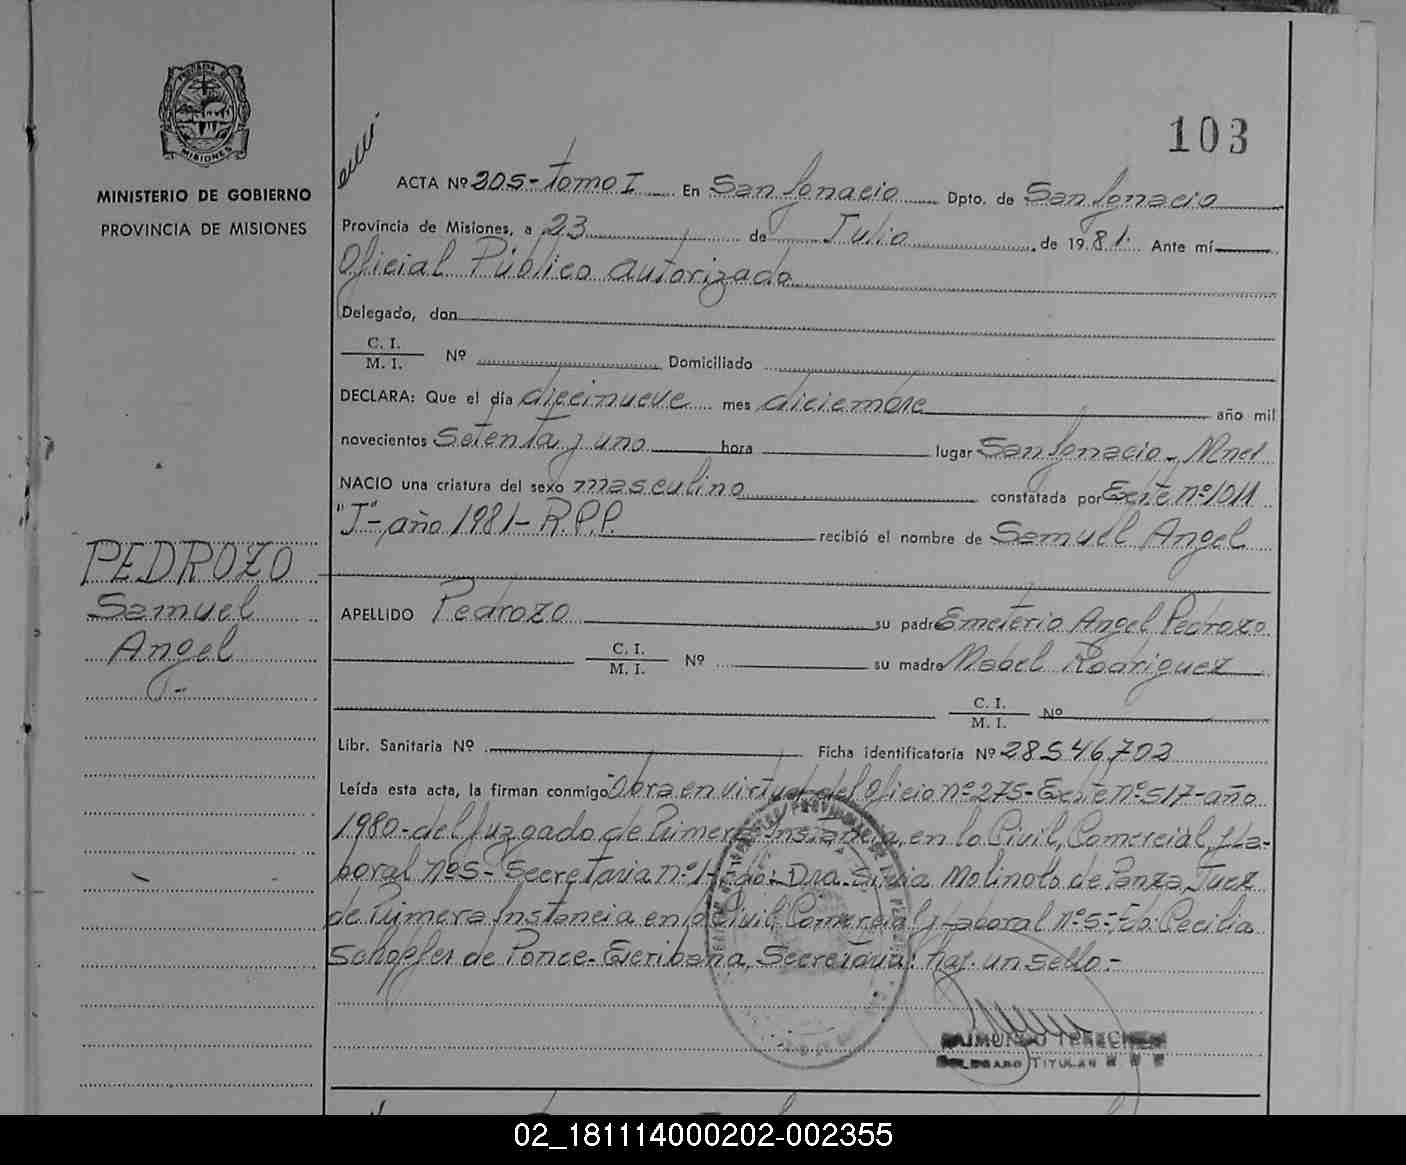 103
MISIONES
MINISTERIO DE GOBIERNO
PROVINCIA DE MISIONES
ACTA Nº 205 - Tomo I En San Ignacio Dpto. de San Ignacio
Provincia de Misiones, a 23 de Julio de 1981. Ante mí
Oficial Público autorizado
Delegado, don
C. I.
M. I. Nº Domiciliado
DECLARA: Que el día diecinueve mes diciembre año mil
novecientos Setenta y uno hora lugar San Ignacio - Mnes
NACIO una criatura del sexo masculino constatada por Exte nº 1011
"J" - año 1981 - R.P.P. recibió el nombre de Samuel Angel
PEDROZO
Samuel
Angel
APELLIDO Pedrozo su padre Emeterio Angel Pedrozo
C. I.
M. I. Nº su madre Mabel Rodriguez
C. I.
M. I. Nº
Libr. Sanitaria Nº Ficha identificatoria Nº 28546702
Leída esta acta, la firman conmigo Obra en virtud del Oficio nº 275 - Exte nº 517 - año
1980 - del Juzgado de Primera Instancia, en lo Civil, Comercial, y La-
boral nº 5 - Secretaria nº 1 - Fdo: Dra. Silvia Molinolo de Panza, Juez
de Primera Instancia en lo Civil Comercial y Laboral nº 5 - Fdo: Cecilia
Schapfer de Ponce - Escribana, Secretaria: hay un sello.-
RAIMUNDO
DELEGADO TITULAR
02_181114000202-002355